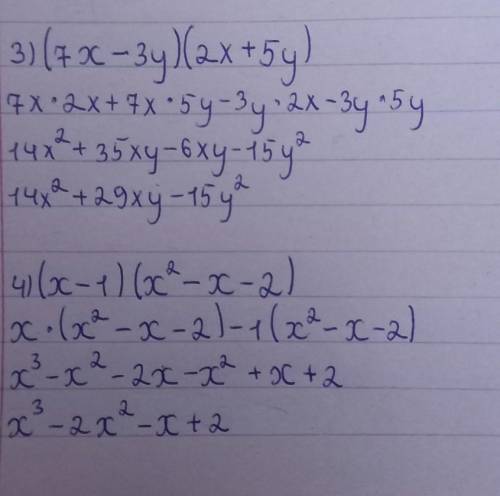 3) (7x - 3y)(2x + 5y)
7x · 2x + 7x · 5y - 3y · 2x - 3y · 5y
14x² + 35xy - 6xy - 15y²
14x² + 29xy - 15y²
4) (x - 1) (x² - x - 2)
x · (x² - x - 2) - 1(x² - x - 2)
x³ - x² - 2x - x² + x + 2
x³ - 2x² - x + 2